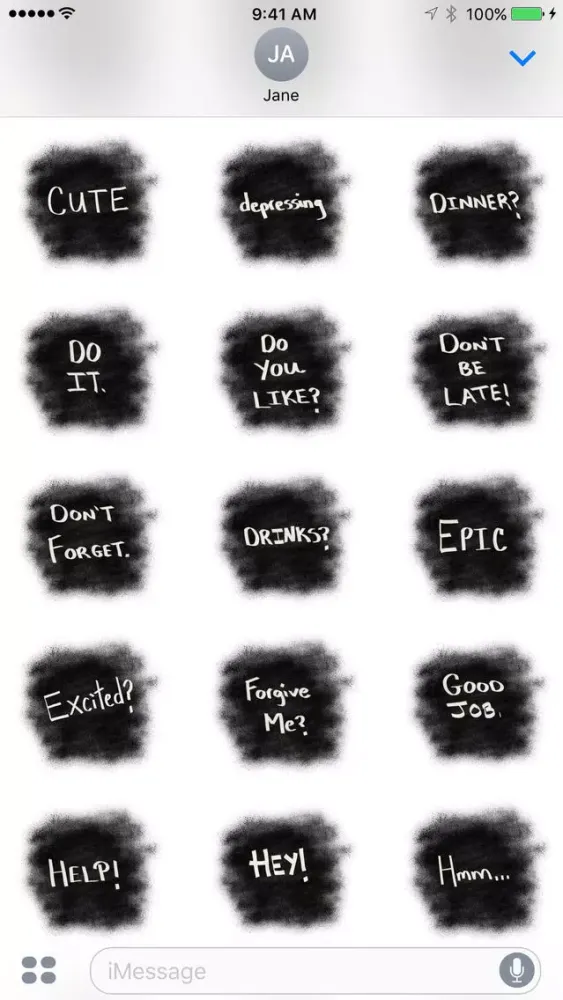 9:41 AM
100%
JA
Jane
CUTE
depressing
DINNER?
DO
IT.
DO
YOU
LIKE?
DON'T
BE
LATE!
DON'T
FORGET.
DRINKS?
EPIC
Excited?
Forgive
Me?
GOOD
JOB.
HELP!
HEY!
Hmm...
iMessage